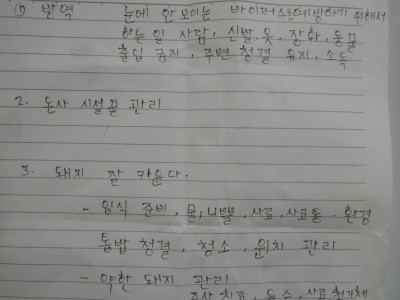 방역 눈에 안 보이는 바이러스 예방하기 위해서
하는 일 사람, 신발, 옷, 장화, 동물
출입 금지, 주변 청결 유지, 소독
2. 돈사 시설물 관리
3. 돼지 잘 키운다.
- 입식 준비, 물, 니쁠, 사료, 사료통, 환경
톱밥 청결, 청소, 위치 관리
- 약한 돼지 관리
주사 치료, 음수, 사료 첨가제